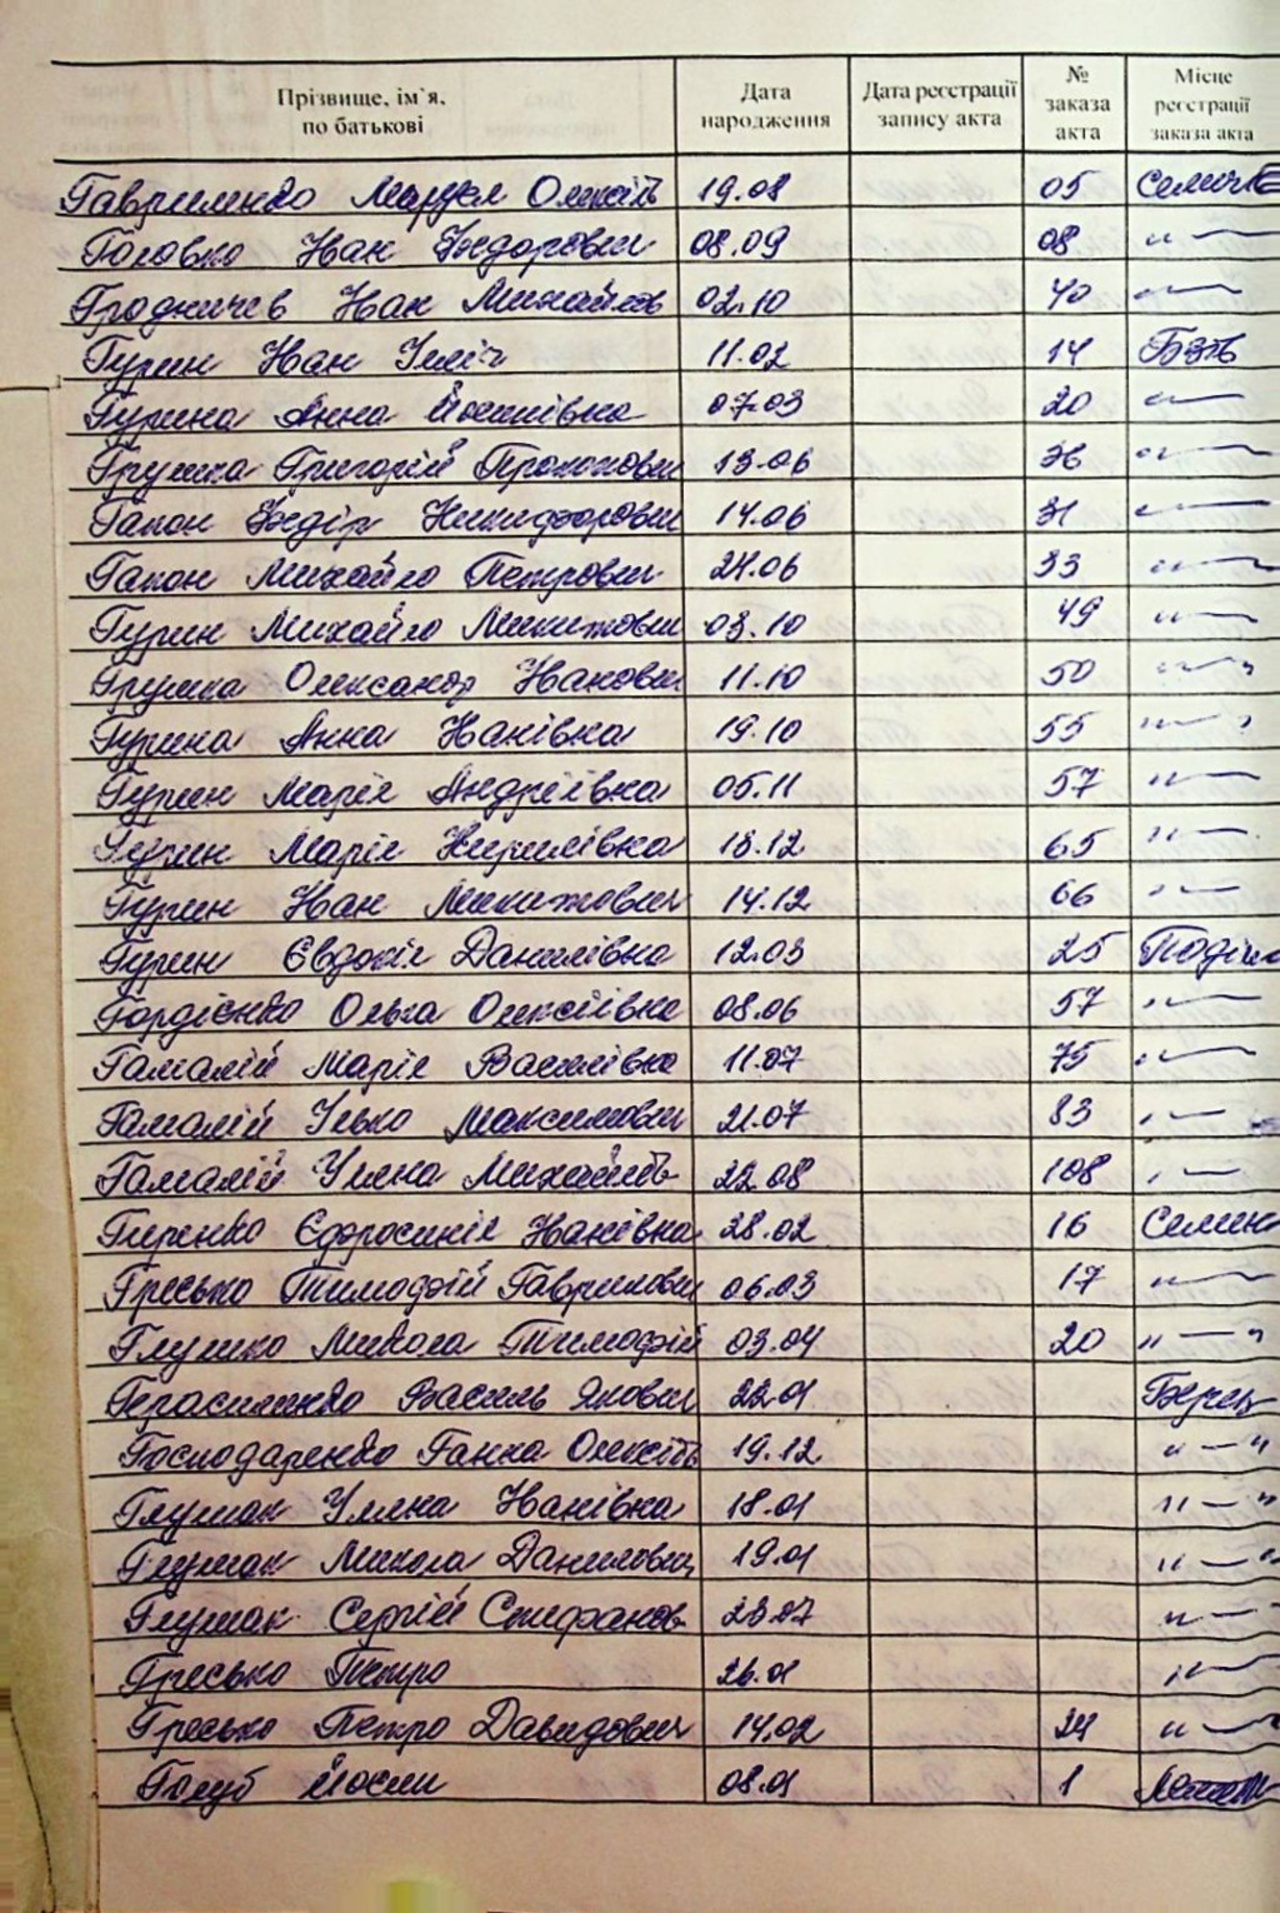 Прізвище, ім`я, по батькові Дата народження Дата реєстрації запису акта № заказа акта Місце реєстрації заказа акта
Гавриленко Олексіїв 19.08 05
Головко Іван Федорович 08.09 08 "—
Гродничев Іван Михайлов 02.10 40 "—
Гурин Іван Ілліч 11.02 14
Гурина Анна Йосипівна 07.03 20 "—
Грушка Григорій Прокопович 13.06 "—
Гапон Федір Никифорович 14.06 31 "—
Гапон Михайло Петрович 24.06 33 "—
Гурин Михайло Микитович 03.10 49 "—
Грушка Олександр Іванович 11.10 50 "—"
Гурина Анна Іванівна 19.10 55 "—"
Гурин Марія Андріївна 05.11 57 "—
Гурин Марія Кирилівна 18.12 65 "—
Гурин Іван Микитович 14.12 66 "—
Гурин Євдокія Данилівна 12.03 25
Гордієнко Ольга Олексіївна 08.06 57 "—
Гамалій Марія Василівна 11.07 75 "—
Гамалій Ілько Максимович 21.07 83 "—
Гамалій Уляна Михайлів 22.08 108 "—
Гиренко Єфросинія Іванівна 28.02 16 Семен
Гресько Тимофій Гаврилович 06.03 17 "—
Глушко Микола Тимофій 03.04 20 "—"
Герасименко Василь Якович 22.01
Господаренко Ганна Олексіїв 19.12 "—"
Глушак Уляна Іванівна 18.01 "—"
Глушак Микола Данилович 19.01 "—"
Глушак Сергій Стифанов 23.07 "—
Гресько Петро 26.01 "—
Гресько Петро Давидович 14.02 24 "—
Голуб Йосип 08.01 1